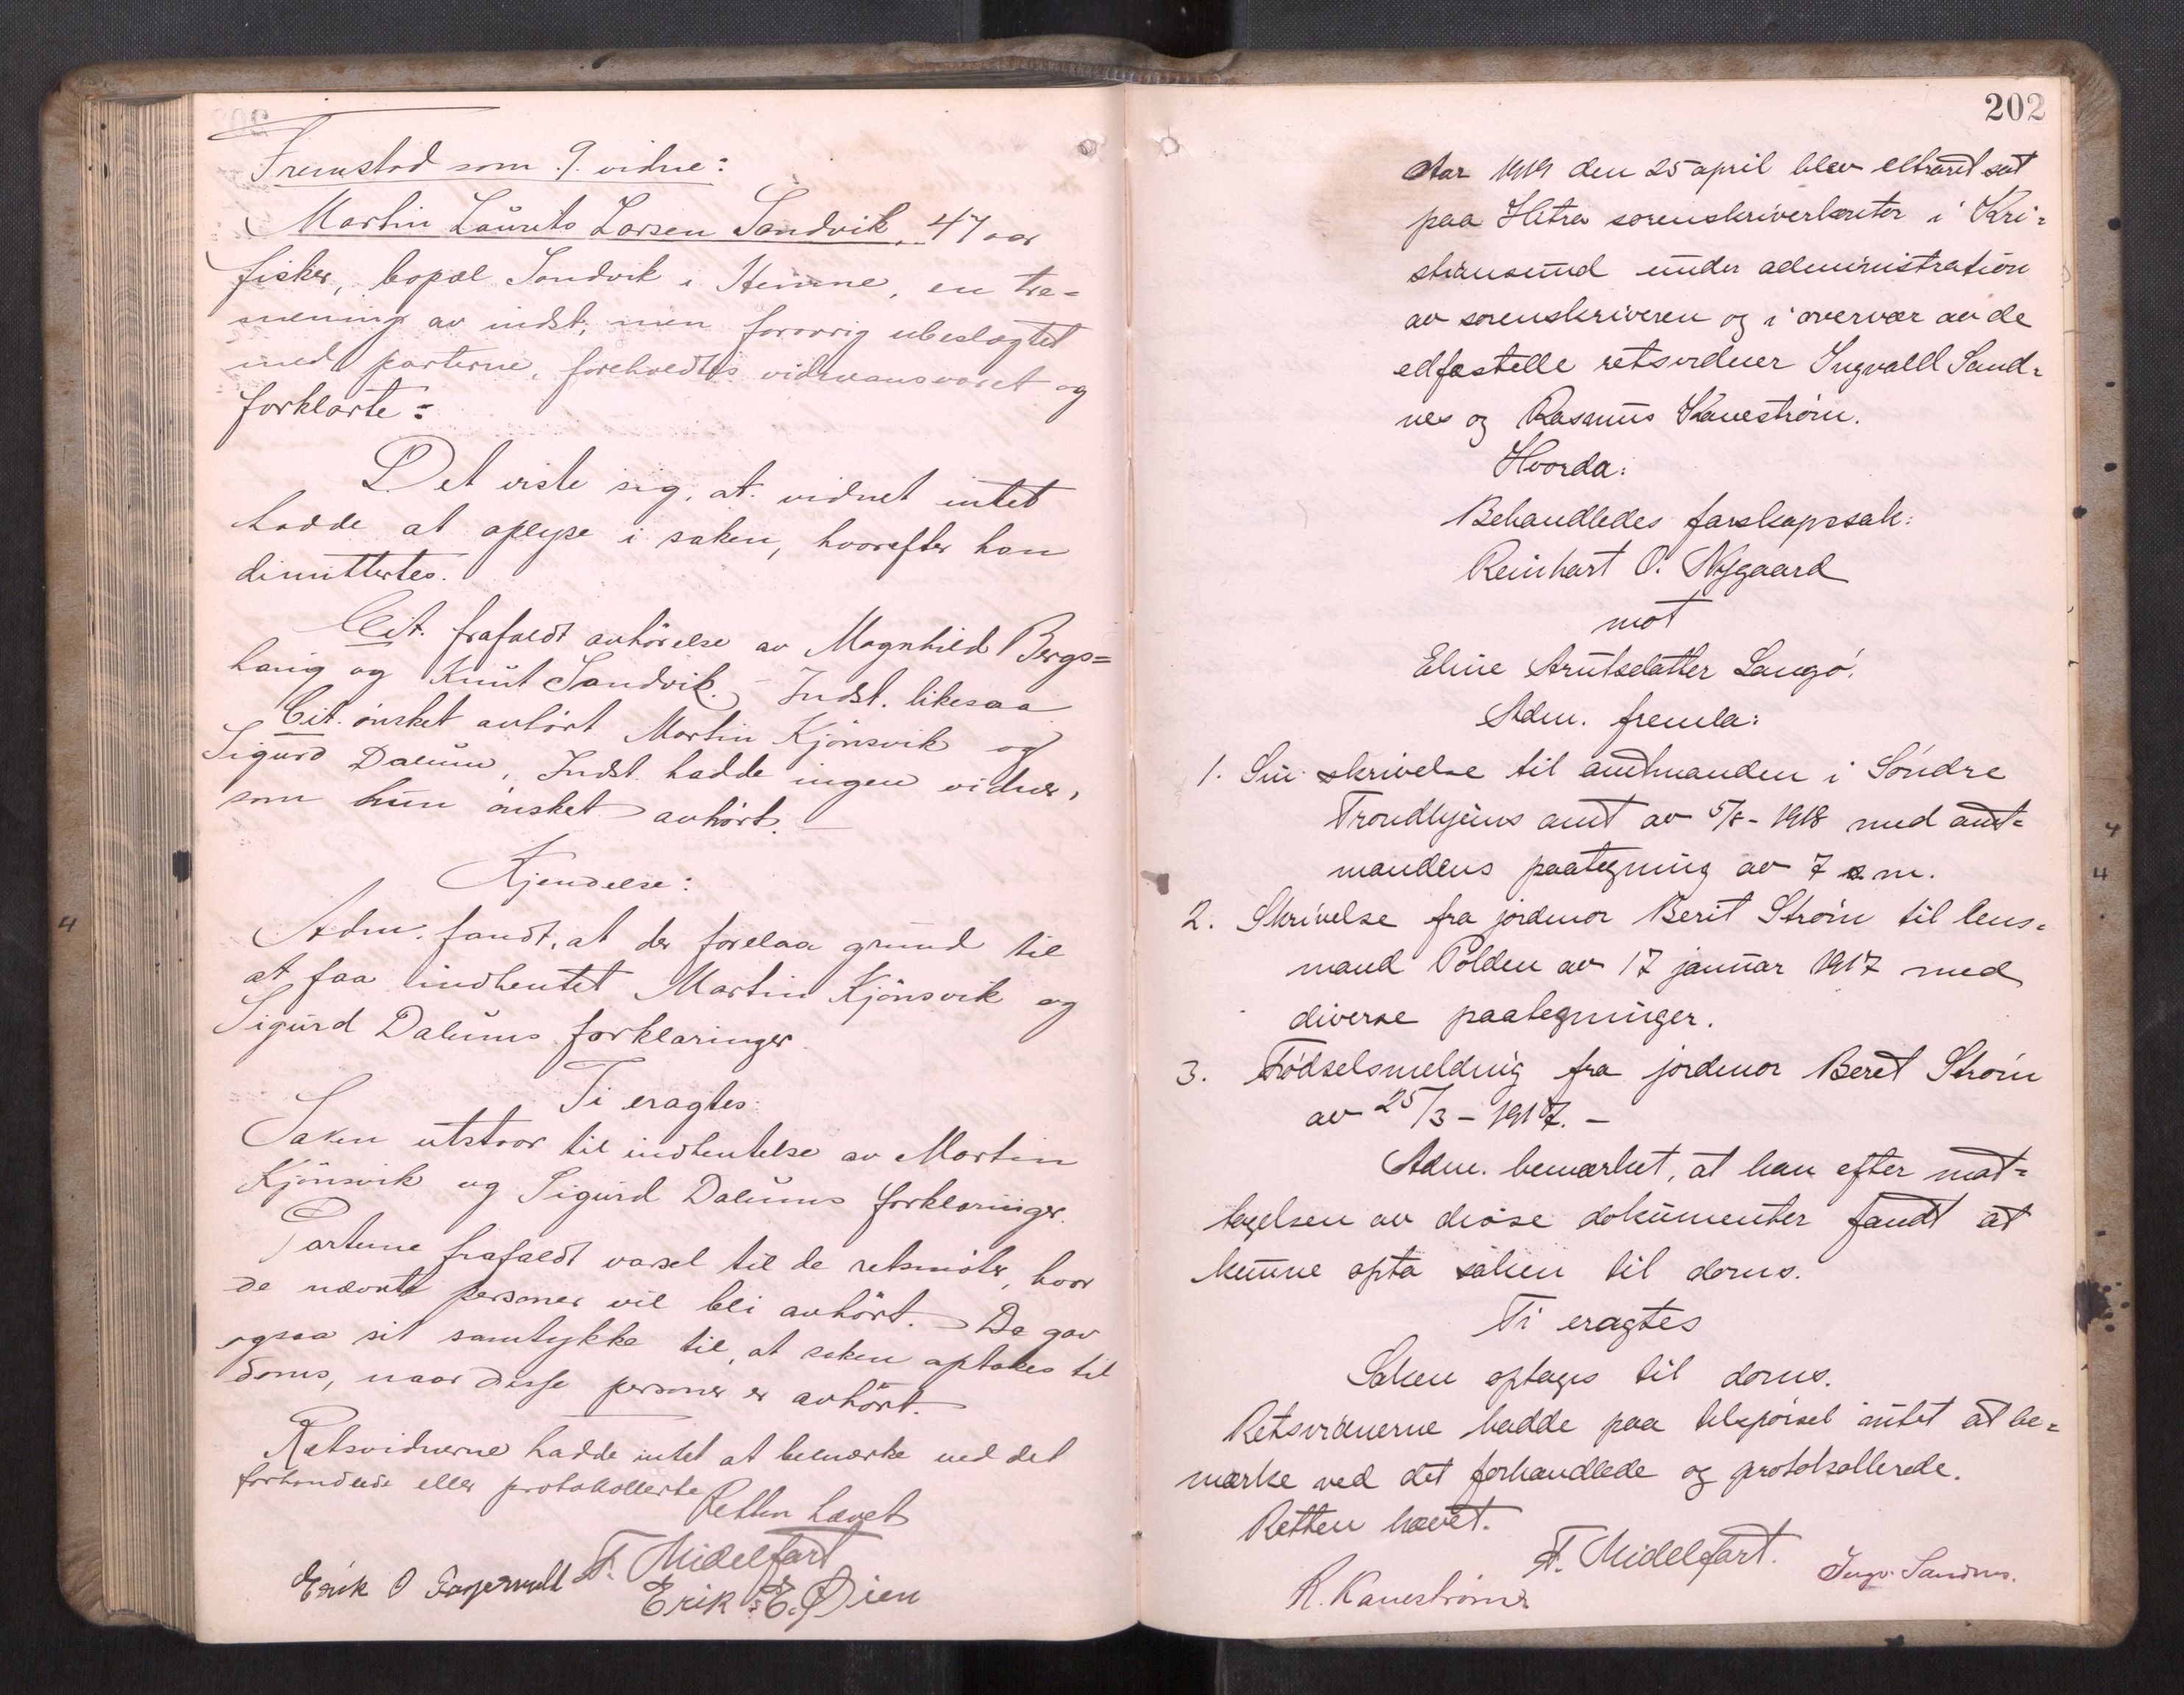 Fremstod som 9. vidne:
Martin Laurits Larsen Sandvik, 47 aar
fisker, bopæl Sandvik i Hemne, en tre-
mening av indst, men forøvrig ubeslægtet
med parterne, foreholdtes vidneansvaret og
forklarte:
Det viste sig, at vidnet intet
hadde at oplyse i saken, hvorefter han
dimittertes.
Cit. frafaldt avhörelse av Magnhild Bergs=
haug og Knut Sandvik. - Indst. likesaa
Cit. önsket avhört Martin Kjönsvik og
Sigurd Dalum, Indst. hadde ingen vidner,
som hun önsket avhört. -
Kjendelse:
Adm. fandt, at der forelaa grund til
at faa indhentet Martin Kjönsvik og
Sigurd Dalums forklaringer.
Ti eragtes:
Saken utstaar til indhentelse av Martin
Kjönsvik og Sigurd Dalums forklaringer.
Parterne frafaldt varsel til de retsmöter, hvor
de nævnte personer vil bli avhört. De gav
ogsaa sit samtykke til, at saken optakes til
doms, naar disse personer er avhört.
Retsvidnerne hadde intet at bemerke ved det
forhandlede eller protokollerte
Retten hævet
F. Midelfart
Erik O Fagervold
Erik E. Øien
202
Aar 1919 den 25 april blev ekstraret sat
paa Hitra sorenskriverkontor i Kri=
stiansund under administration
av sorenskriveren og i overvær av de
edfæstelle retsvidner Ingvald Sand=
nes og Rasmus Kaneström.
Hvorda:
Behandledes farskapssak:
Reinhart O. Nygaard
mot
Eline Knutsdatter Langö.
Adm. fremla:
1. Sin skrivelse til amtmanden i Söndre
Trondhjems amt av 5/8 - 1918 med amt=
mandens paategning av 7 s. m.
2. Skrivelse fra jordmor Berit Ström til lens=
mand Polden av 17 januar 1917 med
diverse paategninger.
3. Födselsmelding fra jordmor Beret Ström
av 25/3 - 1917. -
Adm. bemerket, at han efter mot=
tagelsen av disse dokumenter fandt at
kunne opta saken til doms.
Ti eragtes
Saken optages til doms.
Retsvidnerne hadde paa tilspörsel intet at be=
mærke ved det forhandlede og protokollerede.
Retten hævet.
F. Midelfart.
R. Kaneström
Ingv. Sandnes.